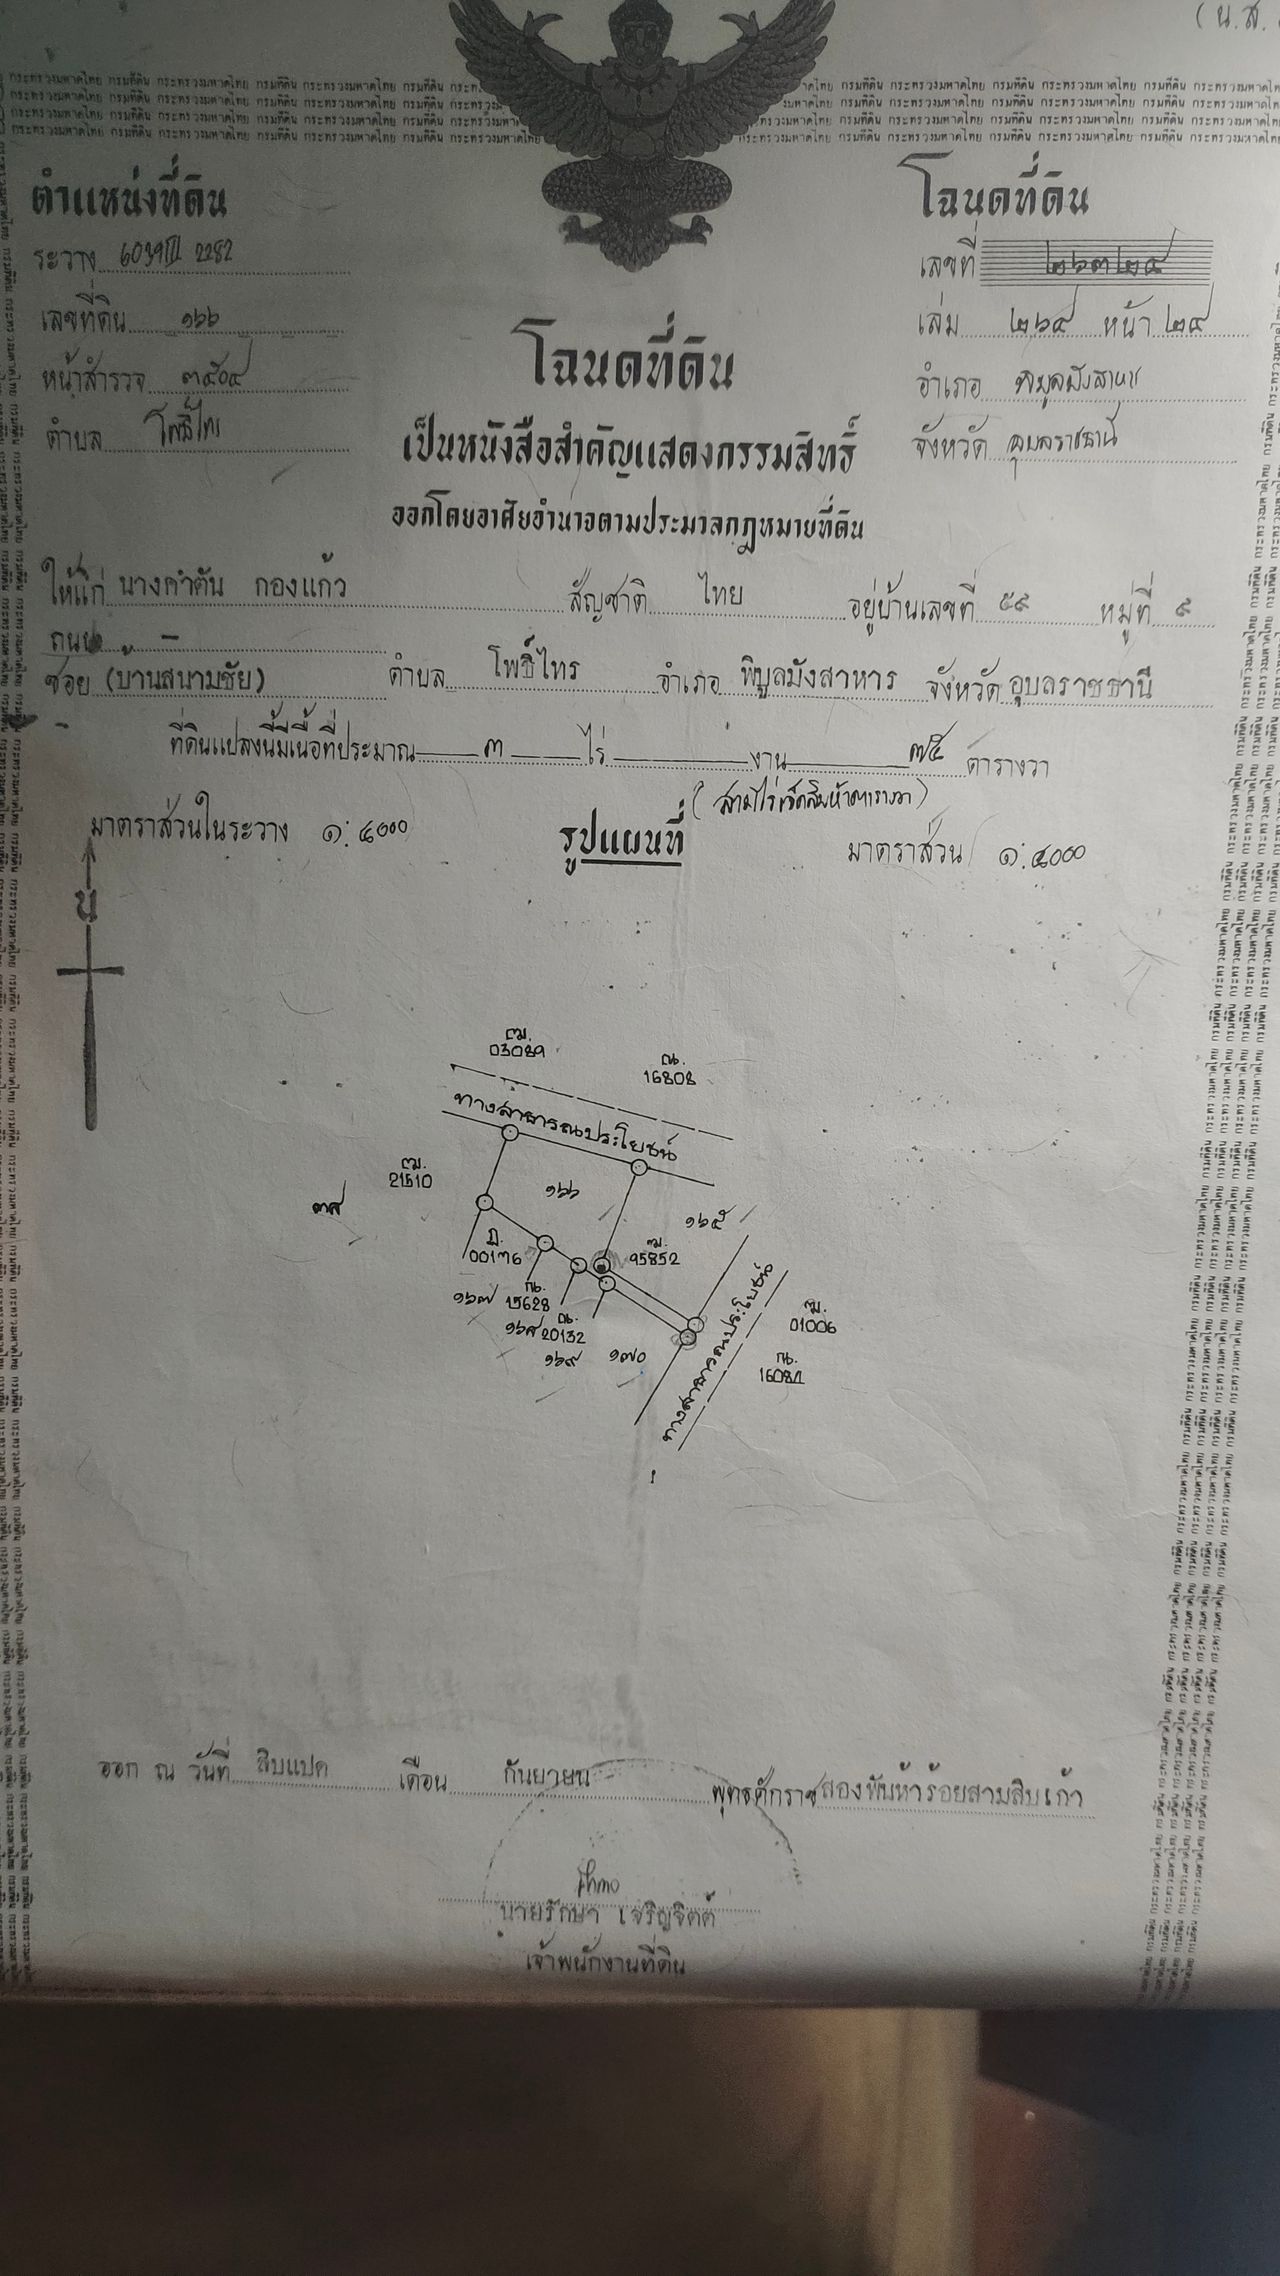 (น.ส.
กระทรวงมหาดไทย กรมที่ดิน กระทรวงมหาดไทย กรมที่ดิน กระทรวงมหาดไทย กรมที่ดิน
ตำแหน่งที่ดิน
โฉนดที่ดิน
ระวาง 6039 III 2282
เลขที่ ๒๖๓๒๔
เลขที่ดิน ๑๖๖
เล่ม ๒๖๔ หน้า ๒๔
หน้าสำรวจ ๓๔๐๔
อำเภอ พิบูลมังสาหาร
ตำบล โพธิ์ไทร
จังหวัด อุบลราชธานี
โฉนดที่ดิน
เป็นหนังสือสำคัญแสดงกรรมสิทธิ์
ออกโดยอาศัยอำนาจตามประมวลกฎหมายที่ดิน
ให้แก่ นางคำตัน กองแก้ว สัญชาติ ไทย อยู่บ้านเลขที่ ๕๙ หมู่ที่ ๙
ถนน –
ซอย (บ้านสนามชัย) ตำบล โพธิ์ไทร อำเภอ พิบูลมังสาหาร จังหวัด อุบลราชธานี
ที่ดินแปลงนี้มีเนื้อที่ประมาณ ๓ ไร่ งาน ๗๕ ตารางวา
(สามไร่เจ็ดสิบห้าตารางวา)
มาตราส่วนในระวาง ๑:๔๐๐๐
รูปแผนที่
มาตราส่วน ๑:๔๐๐๐
น
03089
16808
ทางสาธารณประโยชน์
21510
๑๖๖
๓๘
๑๖๕
00176
95852
๑๖๗
15628
๑๖๘
20132
๑๖๙
๑๗๐
ทางสาธารณประโยชน์
01006
16082
ออก ณ วันที่ สิบแปด เดือน กันยายน พุทธศักราช สองพันห้าร้อยสามสิบเก้า
นายรักษา เจริญจิตต์
เจ้าพนักงานที่ดิน